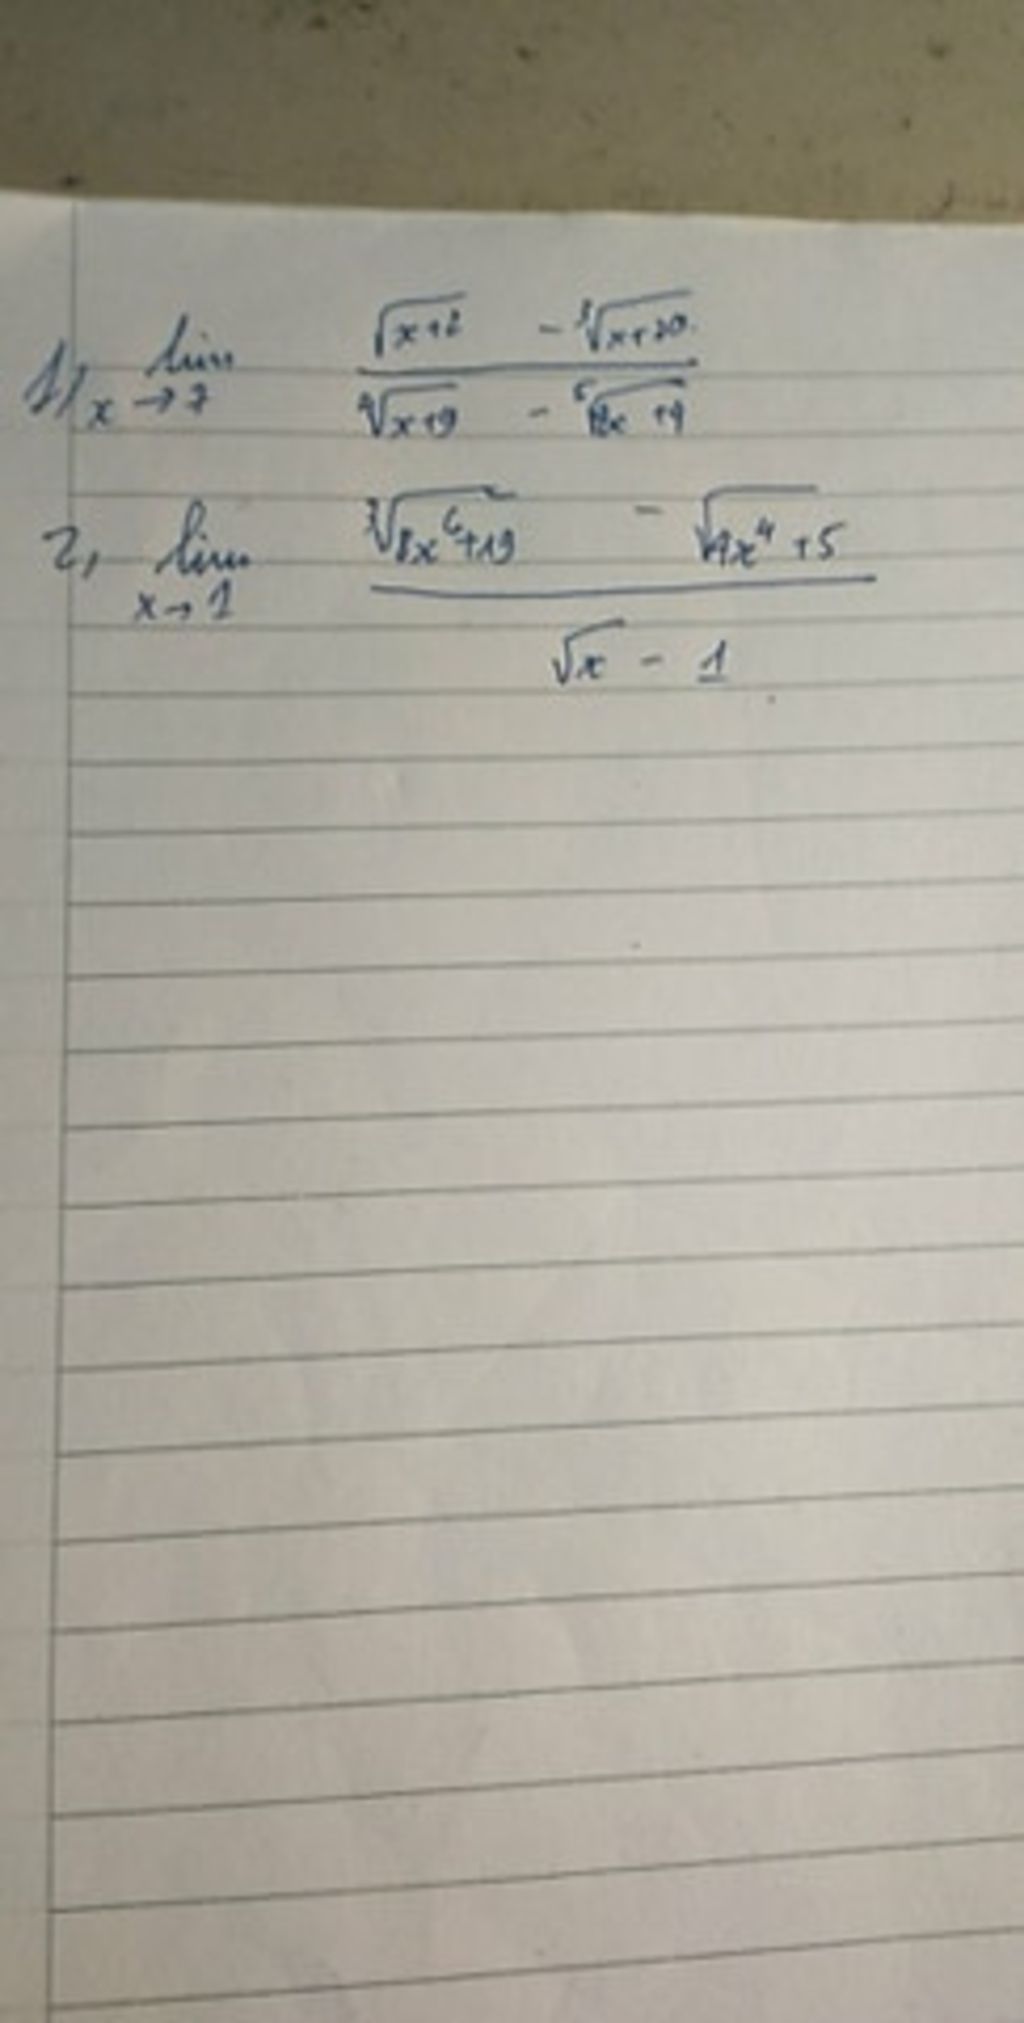 1, lim x→7 (√(x+2) - ∛(x+20)) / (∜(x+9) - ⁵√(8x+4))
2, lim x→1 (∛(8x⁶+19) - √(4x⁴+5)) / (√x - 1)